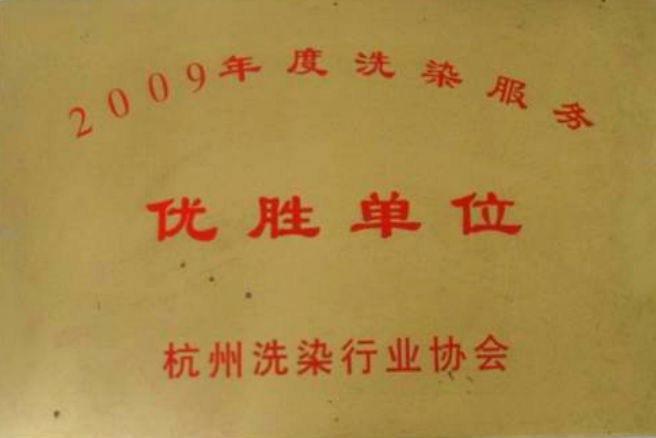 2009年度洗染服务
优胜单位
杭州洗染行业协会